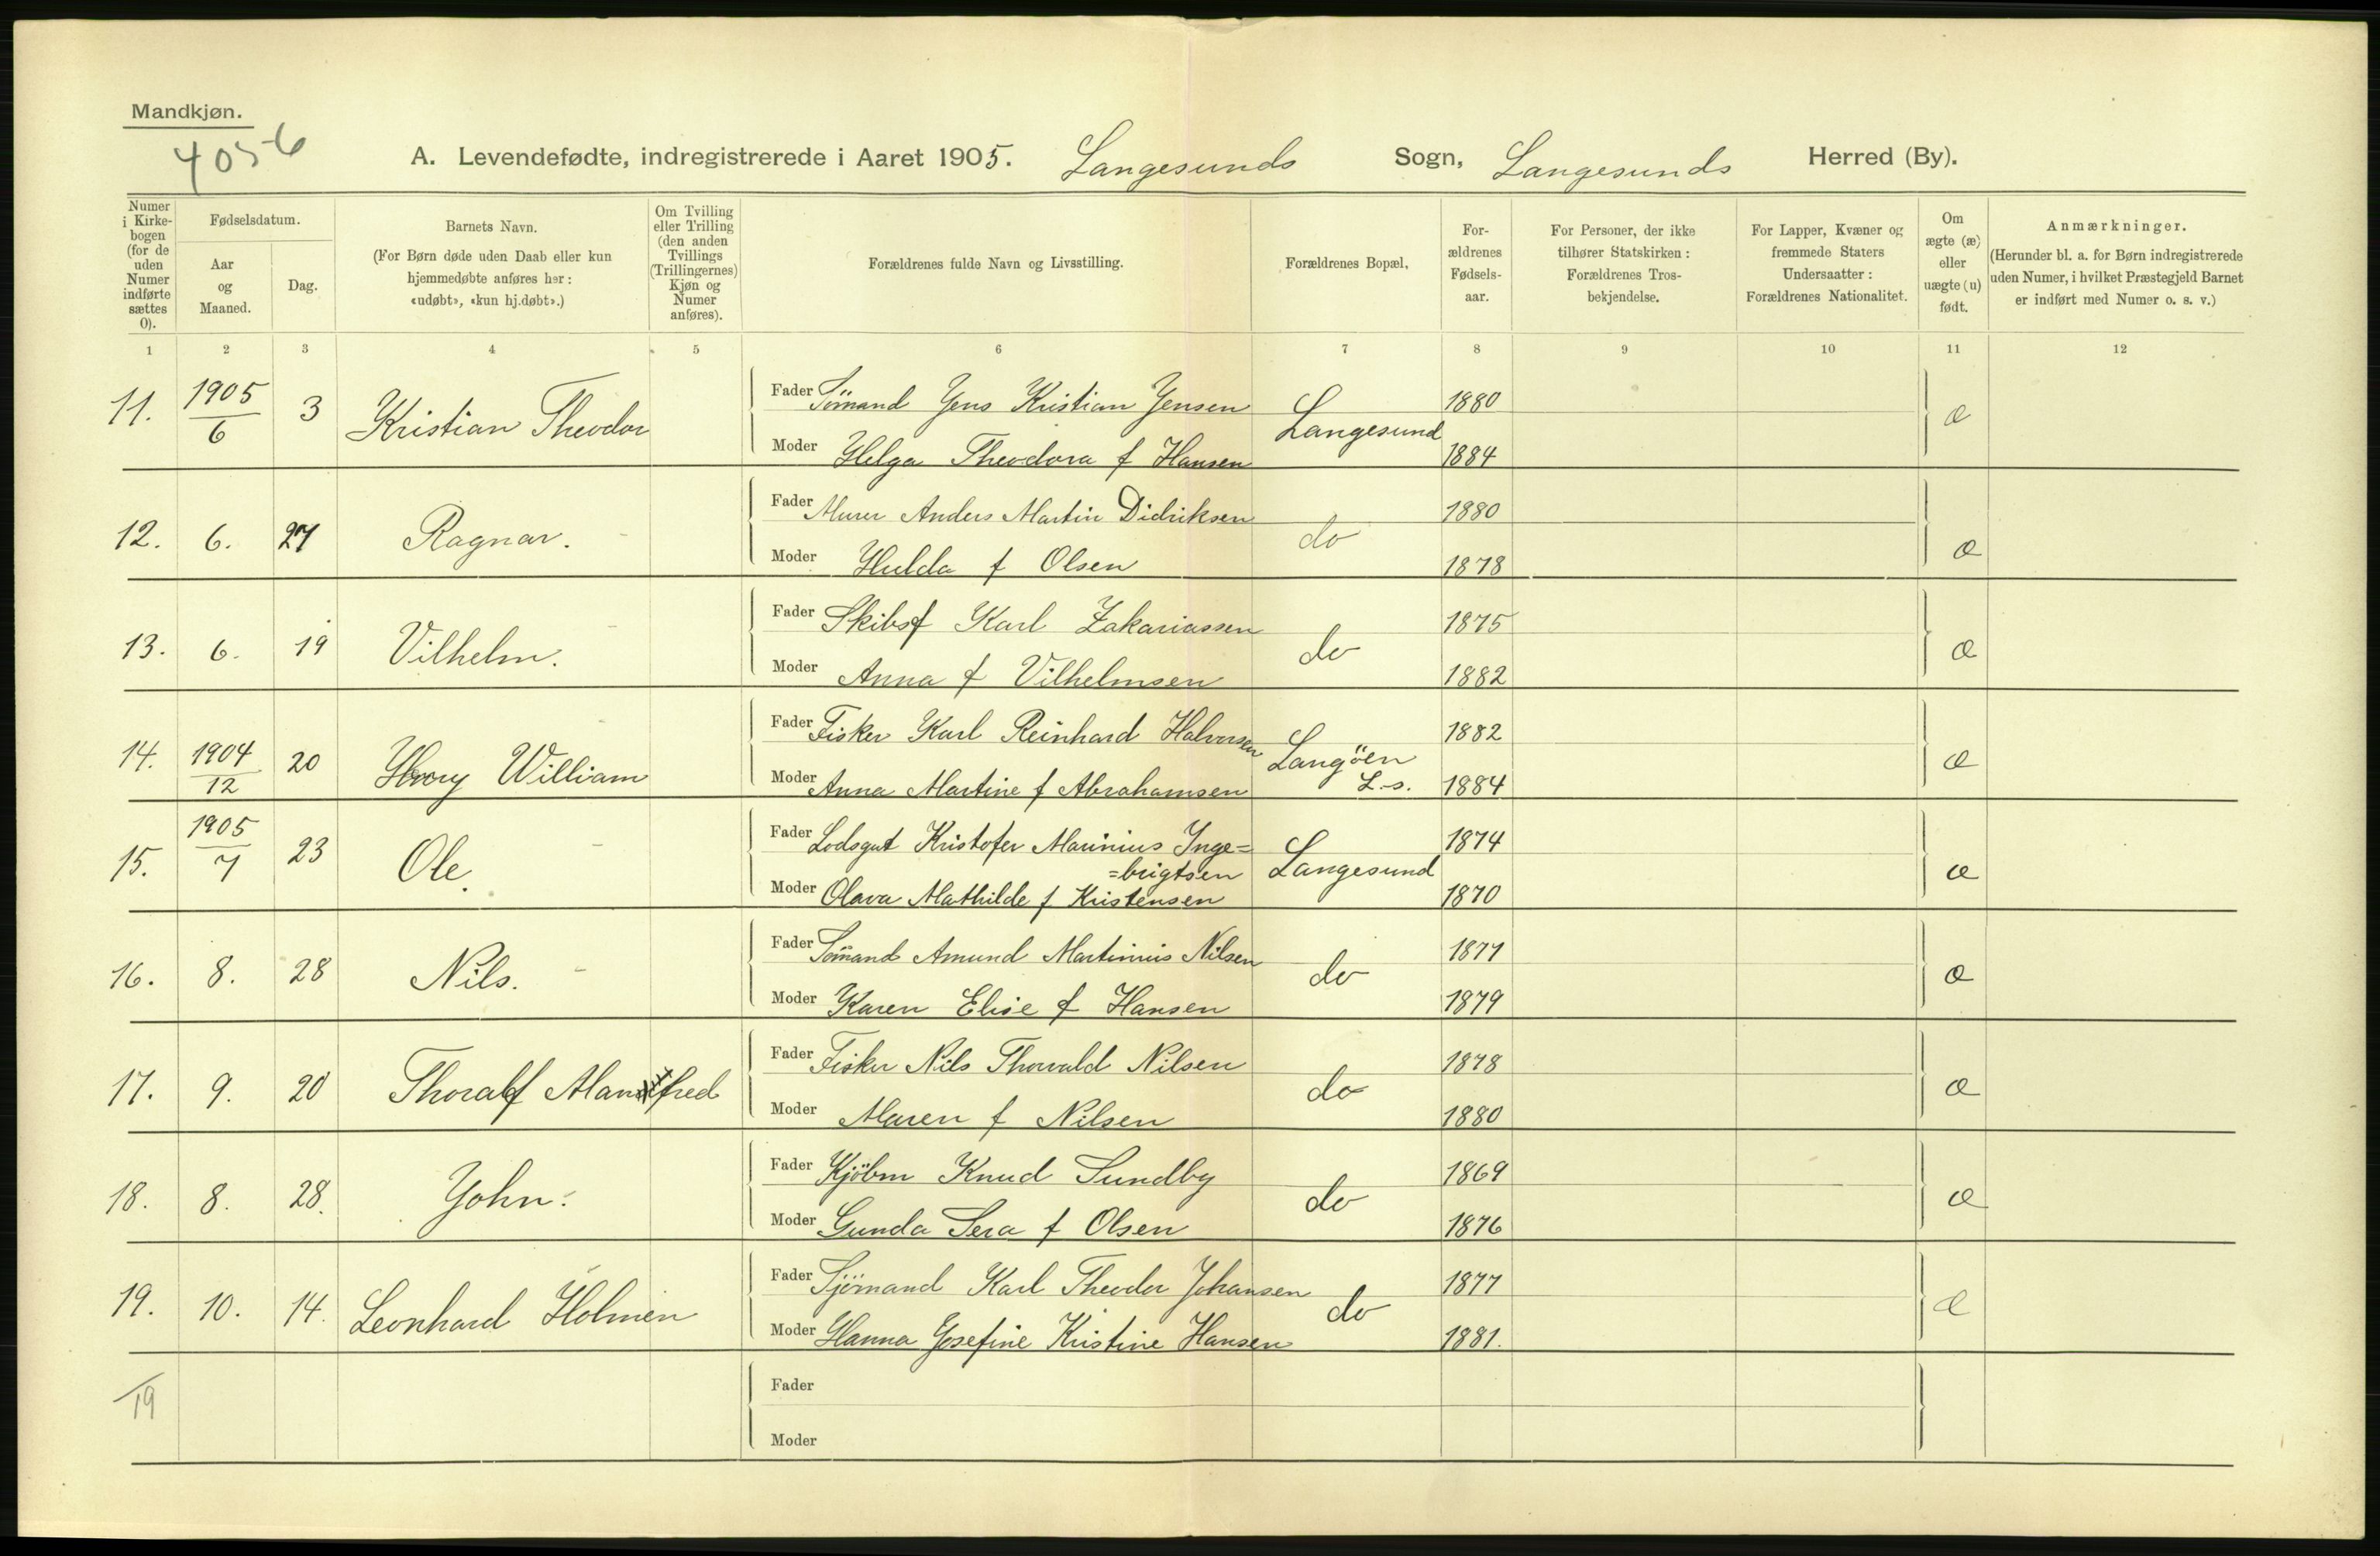 Mandkjøn.
4056
A. Levendefødte, indregistrerede i Aaret 1905. Langesunds Sogn, Langesunds Herred (By).
Numer i Kirkebogen (for de uden Numer indførte sættes 0).
Fødselsdatum.
Aar og Maaned.
Dag.
Barnets Navn.
(For Børn døde uden Daab eller kun hjemmedøbte anføres her: «udøbt», «kun hj.døbt».)
Om Tvilling eller Trilling (den anden Tvillings (Trillingernes) Kjøn og Numer anføres).
Forældrenes fulde Navn og Livsstilling.
Forældrenes Bopæl,
Forældrenes Fødselsaar.
For Personer, der ikke tilhører Statskirken: Forældrenes Trosbekjendelse.
For Lapper, Kvæner og fremmede Staters Undersaatter: Forældrenes Nationalitet.
Om ægte (æ) eller uægte (u) født.
Anmærkninger.
(Herunder bl. a. for Børn indregistrerede uden Numer, i hvilket Præstegjeld Barnet er indført med Numer o. s. v.)
1 2 3 4 5 6 7 8 9 10 11 12
11. 1905/6 3 Kristian Theodor Fader Sömand Jens Kristian Jensen Langesund 1880 æ
Moder Helga Theodora f Hansen 1884
12. 6. 27 Ragnar. Fader Murer Anders Martin Didriksen do 1880 æ
Moder Hulda f Olsen 1878
13. 6. 19 Vilhelm. Fader Skibsf Karl Zakariassen do 1875 æ
Moder Anna f Vilhelmsen 1882
14. 1904/12 20 William Fader Fisker Karl Reinhard Halvorsen Langöen L.s. 1882 æ
Moder Anna Martine f Abrahamsen 1884
15. 1905/7 23 Ole. Fader Lodsgut Kristofer Marinius Inge=
=brigtsen Langesund 1874 æ
Moder Olava Mathilde f Kristensen 1870
16. 8. 28 Nils. Fader Sömand Amund Martinius Nilsen do 1877 æ
Moder Karen Elise f Hansen 1879
17. 9. 20 Thoralf Manfred Fader Fisker Nils Thorvald Nilsen do 1878 æ
Moder Maren f Nilsen 1880
18. 8. 28. John. Fader Kjöbm Knud Sundby do 1869 æ
Moder Gunda Sera f Olsen 1876
19. 10. 14. Leonhard Holmen Fader Sjömand Karl Theodor Johansen do 1877 æ
Moder Hanna Josefine Kristine Hansen 1881.
19 Fader
Moder